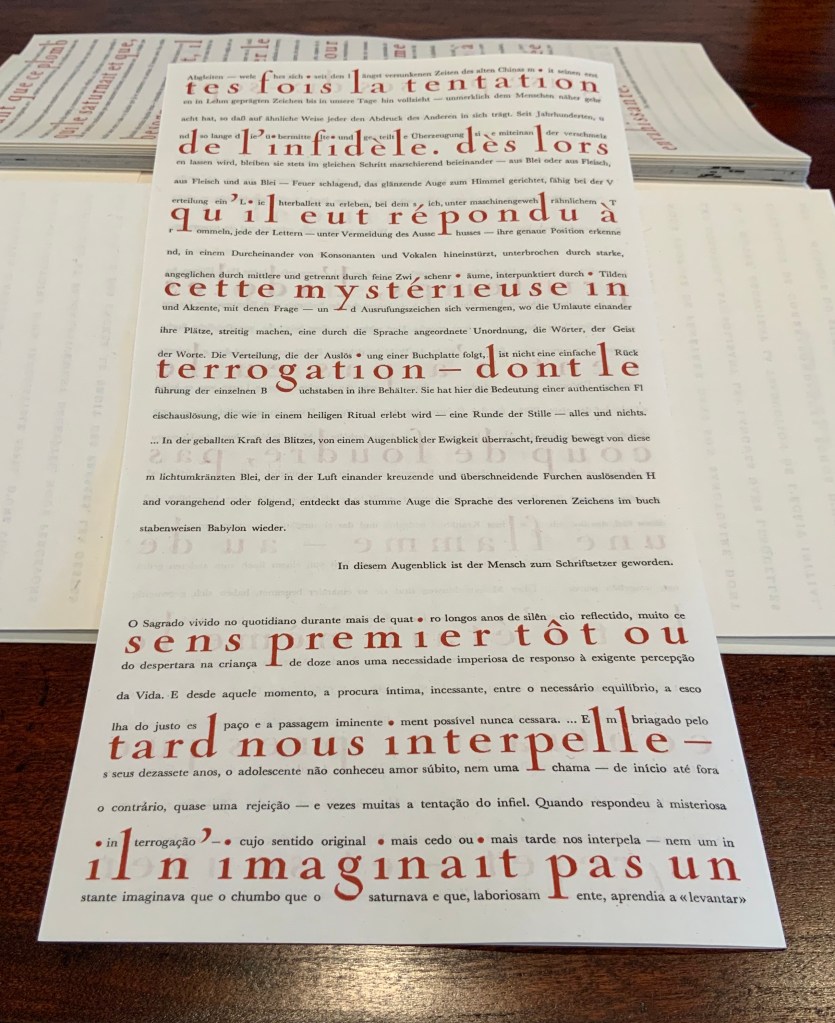 Abgleiten — welches sich • seit den längst versunkenen Zeiten des alten Chinas m • it seinen
tes fois la tentation
en in Lehm geprägten Zeichen bis in unsere Tage hin vollzieht — unmerklich dem Menschen näher gebr
acht hat, so daß auf ähnliche Weise jeder den Abdruck des Anderen in sich trägt. Seit Jahrhunderten, u
nd so lange d ie • bermitte lte • und geteilt e Überzeugung si e miteinan der verschmelz
de l'infidèle. dès lors
en lassen wird, bleiben sie stets im gleichen Schritt marschierend beieinander — aus Blei oder aus Fleisch,
aus Fleisch und aus Blei — Feuer schlagend, das glänzende Auge zum Himmel gerichtet, fähig bei der V
erteilung ein • ie hterballett zu erleben, bei dem s ich, unter maschinengeweh rähnlichem T
qu'il eut répondu à
r ommeln, jede der Lettern — unter Vermeidung des Ausse husses — ihre genaue Position erkenne
nd, in einem Durcheinander von Konsonanten und Vokalen hineinstürzt, unterbrochen durch starke,
angeglichen durch mittlere und getrennt durch feine Zwi schenr • äume, interpunktiert durch • Tilden
cette mystérieuse in
und Akzente, mit denen Frage — un d Ausrufungszeichen sich vermengen, wo die Umlaute einander
ihre Plätze, streitig machen, eine durch die Sprache angeordnete Unordnung, die Wörter, der Geist
der Worte. Die Verteilung, die der Auslös • ung einer Buchplatte folgt, ist nicht eine einfache Rück
terrogation — dont le
führung der einzelnen B uchstaben in ihre Behälter. Sie hat hier die Bedeutung einer authentischen Fl
eischauslösung, die wie in einem heiligen Ritual erlebt wird — eine Runde der Stille — alles und nichts.
... In der geballten Kraft des Blitzes, von einem Augenblick der Ewigkeit überrascht, freudig bewegt von diese
m lichtumkränzten Blei, der in der Luft einander kreuzende und überschneidende Furchen auslösenden H
and vorangehend oder folgend, entdeckt das stumme Auge die Sprache des verlorenen Zeichens im buch
stabenweisen Babylon wieder.
In diesem Augenblick ist der Mensch zum Schriftsetzer geworden.
O Sagrado vivido no quotidiano durante mais de quat • ro longos anos de silên cio reflectido, muito ce
sens premier tôt ou
do despertara na criança de doze anos uma necessidade imperiosa de responso à exigente percepção
da Vida. E desde aquele momento, a procura íntima, incessante, entre o necessário equilíbrio, a esco
lha do justo es paço e a passagem iminente • ment possível nunca cessara. ... E m briagado pelo
tard nous interpelle —
s seus dezassete anos, o adolescente não conheceu amor súbito, nem uma chama — de início até fora
o contrário, quase uma rejeição — e vezes muitas a tentação do infiel. Quando respondeu à misteriosa
• in terrogação — • cujo sentido original • mais cedo ou • mais tarde nos interpela — nem um in
il n'imaginait pas un
stante imaginava que o chumbo que o saturnava e que, laboriosam ente, aprendia a «levantar»